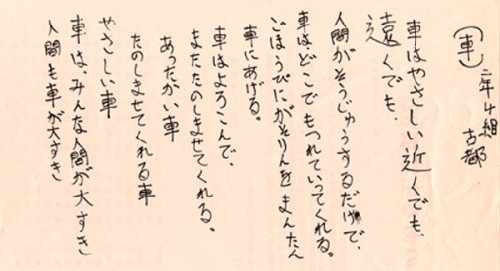 （車）
二年４組 古都
車はやさしい近くでも、
遠くでも、
人間がそうじゅうするだけで、
車は、どこでもつれていってくれる。
ごほうびにがそりんをまんたん
車にあげる。
車はよろこんで、
またたのしませてくれる。
あったかい車
たのしませてくれる車
やさしい車
車は、みんな人間が大すき
人間も車が大すき